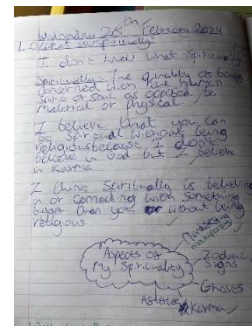 I don't know what Spirituality
Spirituality - the quality of being
concerned with the human
Spirit or Soul as opposed to
material or physical
I believe that you can
be Spiritual without being
religious because I don't
believe in God but I believe
in Karma
I think Spirituality is believing
in or connecting with something
bigger than you without being
religious
Aspects of
My Spirituality
Zodiac
Signs
Ghoses
Karma